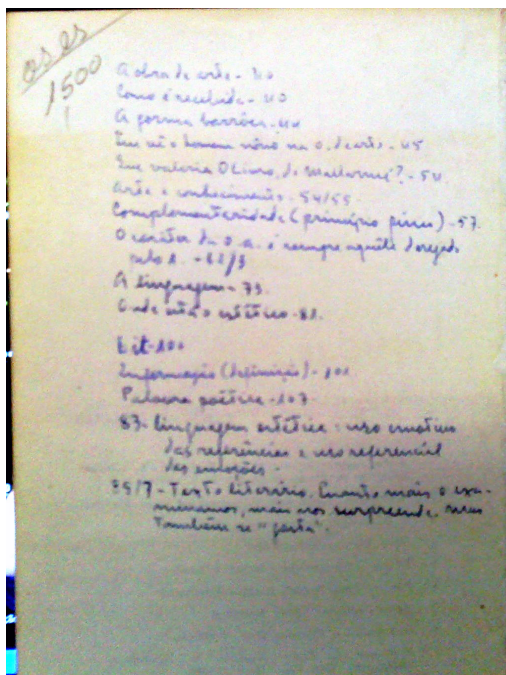 1500
A obra de arte - 40
Como é recebida - 40
A forma barrôca - 44
homem nôvo na o. de arte - 45
Que valeria O Livro, de Mallarmé? - 54.
Arte e conhecimento - 54/55
Complementaridade (princípio físico) - 57.
O caráter da o. a. é sempre aquêle
pelo
A linguagem - 73.
Onde está o estético - 81.
Bit - 100
Informação (definição) - 101
Palavra poética - 107
83 - linguagem estética: uso emotivo
das referências e uso referencial
das emoções.
85/7 - Texto literário. Quanto mais o exa-
minamos, mais nos surpreende, mas
também se "gasta".